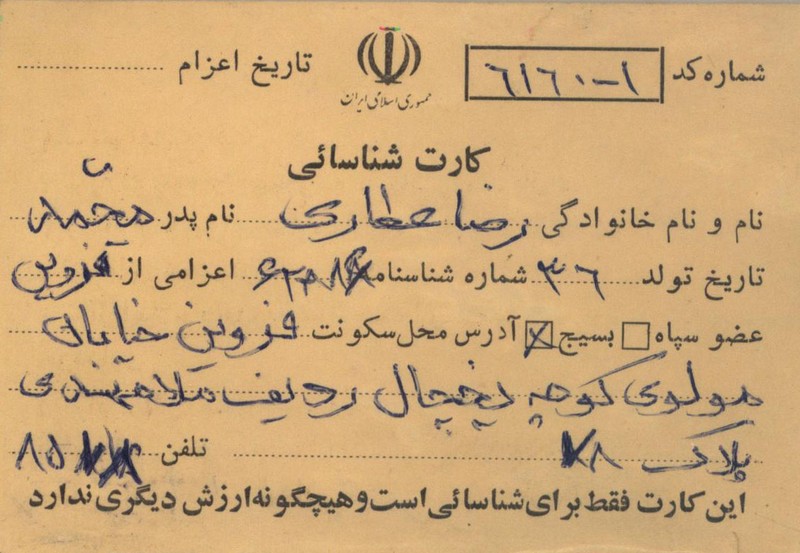 شماره کد ۶۱۶۰-۱ تاریخ اعزام
جمهوری اسلامی ایران
کارت شناسائی
نام و نام خانوادگی رضا عطاری نام پدر محمد
تاریخ تولد ۳۶ شماره شناسنامه اعزامی از قزوین
عضو سپاه بسیج آدرس محل سکونت قزوین خیابان
مولوی کوچه یخچال ردیف
پلاک تلفن
این کارت فقط برای شناسائی است و هیچگونه ارزش دیگری ندارد